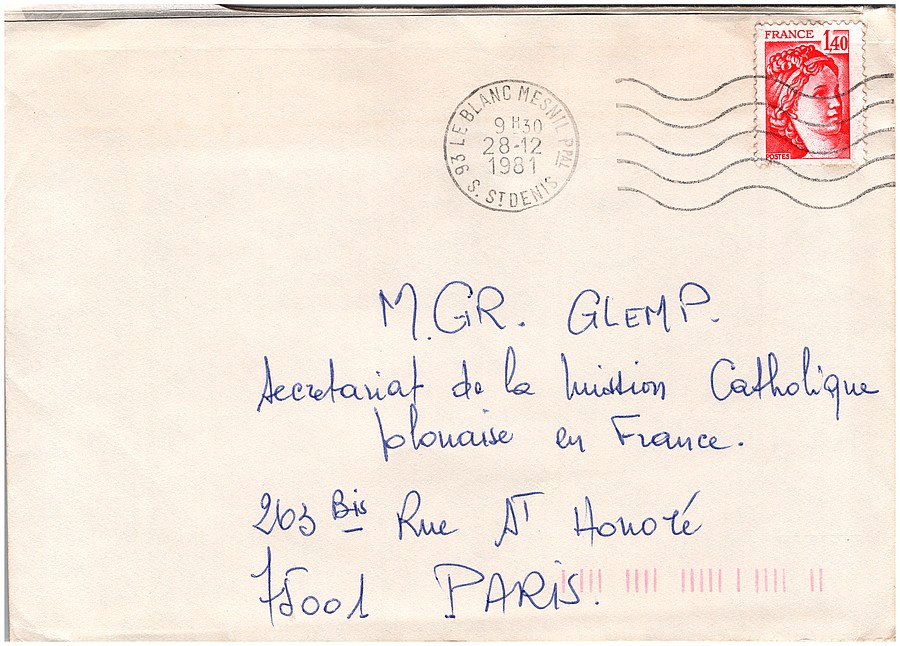 FRANCE 1,40
POSTES
93 LE BLANC MESNIL PPAL
9 H30
28-12
1981
S. ST DENIS
M.GR. GLEMP.
Secretariat de la Mission Catholique
polonaise en France.
263 Bis Rue St Honoré
75001 PARIS.